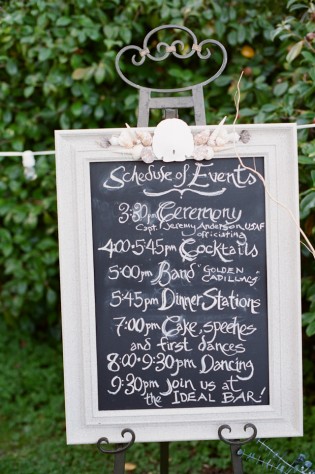 Schedule of Events
3:30pm Ceremony
Capt. Jeremy Anderson, USAF
officiating
4:00-5:45pm Cocktails
5:00pm Band "GOLDEN
CADILLACS"
5:45pm Dinner Stations
7:00pm Cake, speeches
and first dances
8:00-9:30pm Dancing
9:30pm Join us at
the IDEAL BAR!